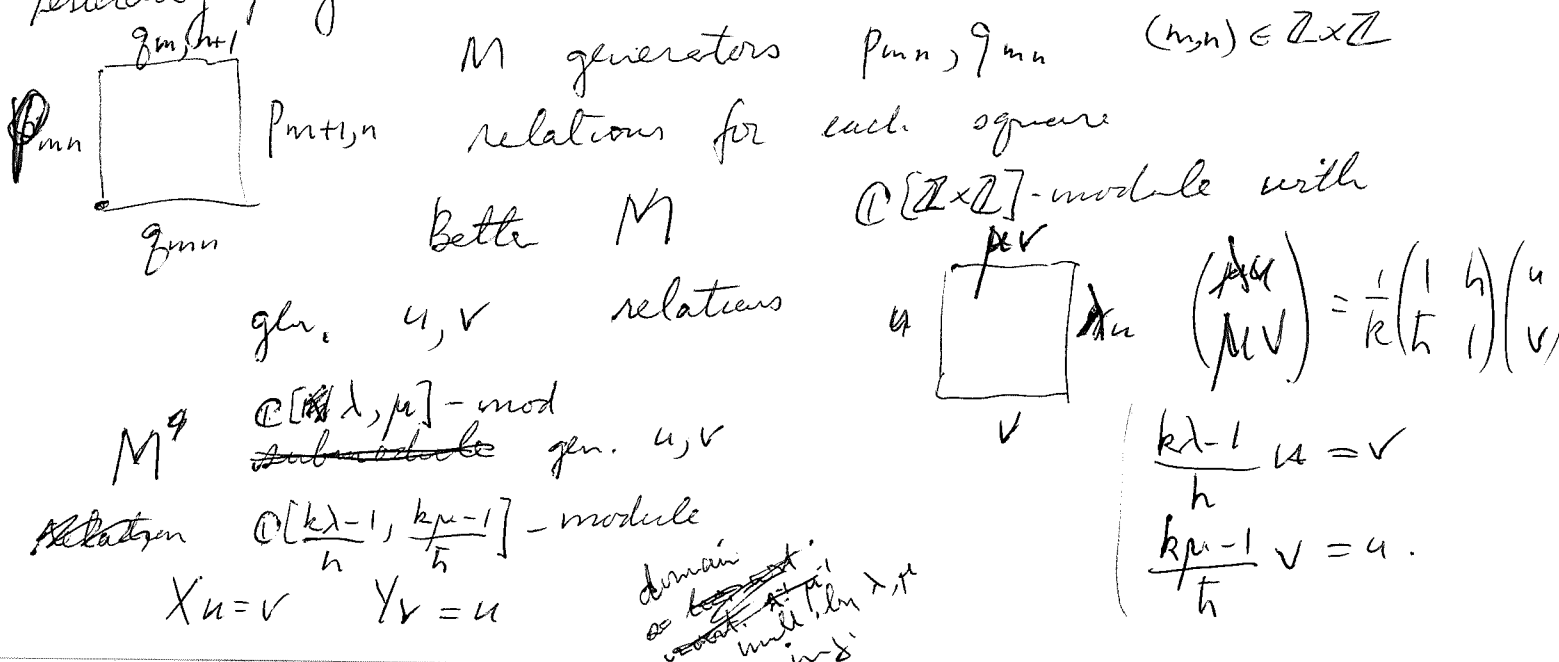 q_{m,n+1} M generators p_{mn}, q_{mn} (m,n) ∈ ℤ×ℤ
p_{mn} p_{m+1,n} relations for each square
q_{mn} Better M ℂ[ℤ×ℤ]-module with
gen. u, v relations
μv
u λu
v
(λu μv) = 1/k (1 h; h̄ 1)(u v)
M^q ℂ[λ, μ]-mod gen. u, v
ℂ[(kλ-1)/h, (kμ-1)/h̄]-module
Xu = v Yv = u
(kλ-1)/h u = v
(kμ-1)/h̄ v = u.
domain
mult. by λ, μ
inj.